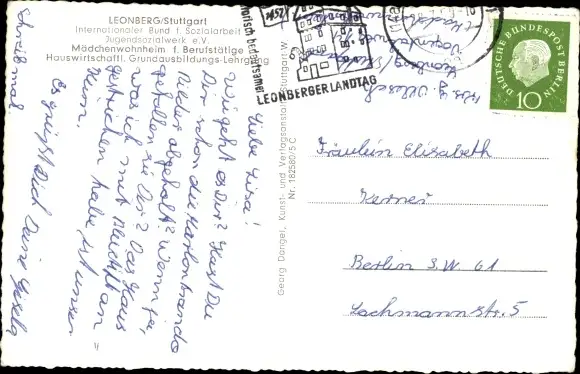 LEONBERG/Stuttgart
Internationaler Bund f. Sozialarbeit
Jugendsozialwerk e.V.
Mädchenwohnheim f. Berufstätige
Hauswirtschaftl. Grundausbildungs-Lehrgang
Liebe Lisa!
Wie geht es Dir? Hast Du
Dir schon die Marlon Brando
Bilder abgeholt? Wenn ja,
gefallen sie Dir? Das Haus
was ich mit Bleistift an
gestrichen habe ist unser
Heim.
Es grüßt Dich Deine Gisela
Schreib mal
Georg Dangel, Kunst- und Verlagsanstalt, Stuttgart W
Nr. 182580/5 C
historisch bedeutsamer
1457
LEONBERGER LANDTAG
DEUTSCHE BUNDESPOST BERLIN
10
Fräulein Elisabeth
Kerner
Berlin S.W. 61
Lachmannstr. 5